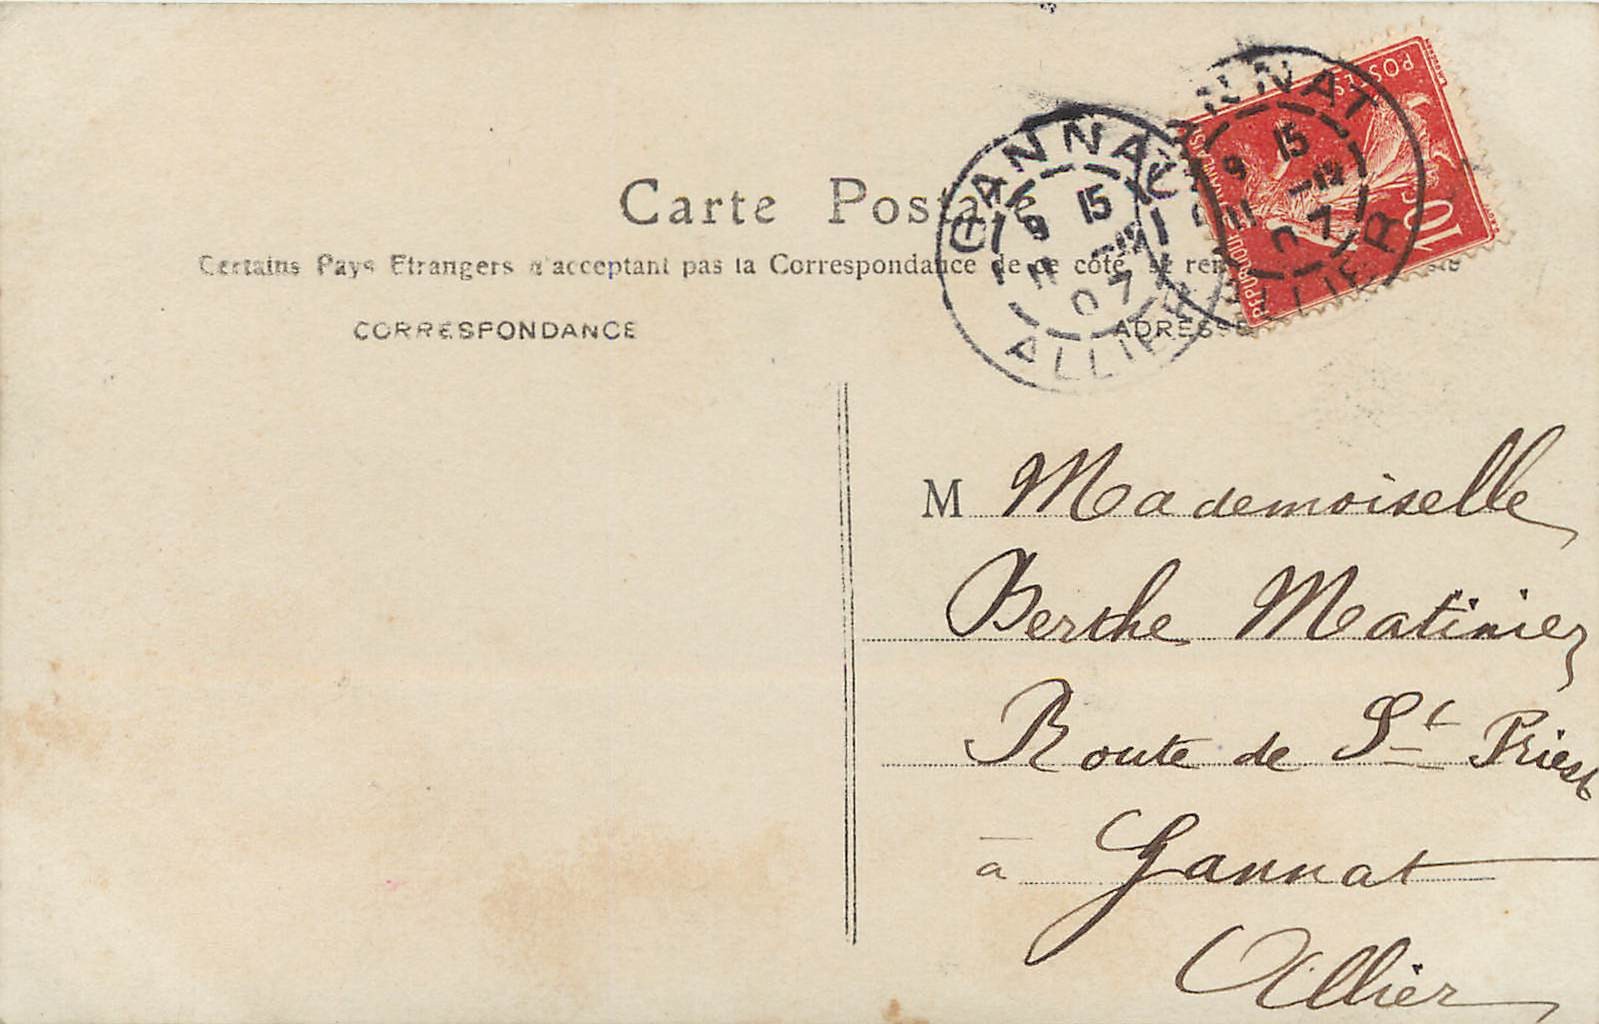 Carte Postale
Certains Pays Etrangers n'acceptant pas la Correspondance de ce côté, se
CORRESPONDANCE
ADRESSE
GANNAT
9 15
11 -12
07
ALLIER
GANNAT
9 15
11 -12
07
ALLIER
POSTES
REPUBLIQUE FRANÇAISE
10c
M Mademoiselle
Berthe Matinier
Route de St Priest
à Gannat
Allier